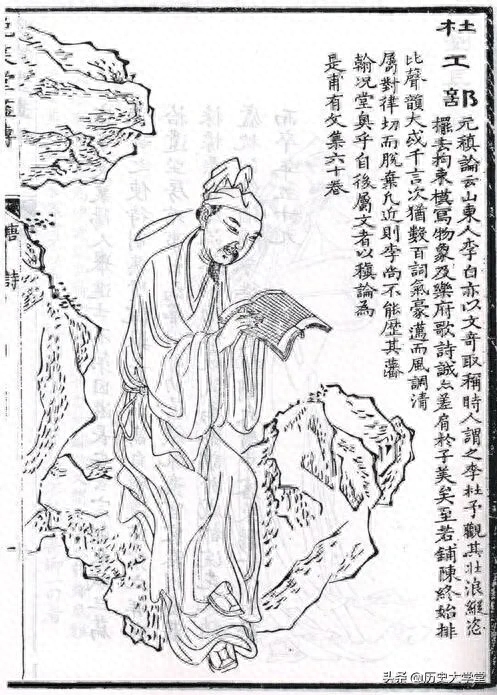 杜工部
元稹論云山東人李白亦以文奇取稱時人謂之李杜予觀其壯浪縱恣
擺去拘束摸寫物象及樂府歌詩誠亦差肩於子美矣至若鋪陳終始排
比聲韻大成千言次猶數百詞氣豪邁而風調清
屬對律切而脫棄凡近則李尚不能歷其藩
翰況堂奧乎自後屬文者以稹論為
是甫有文集六十卷
唐 詩
头条@历史大学堂